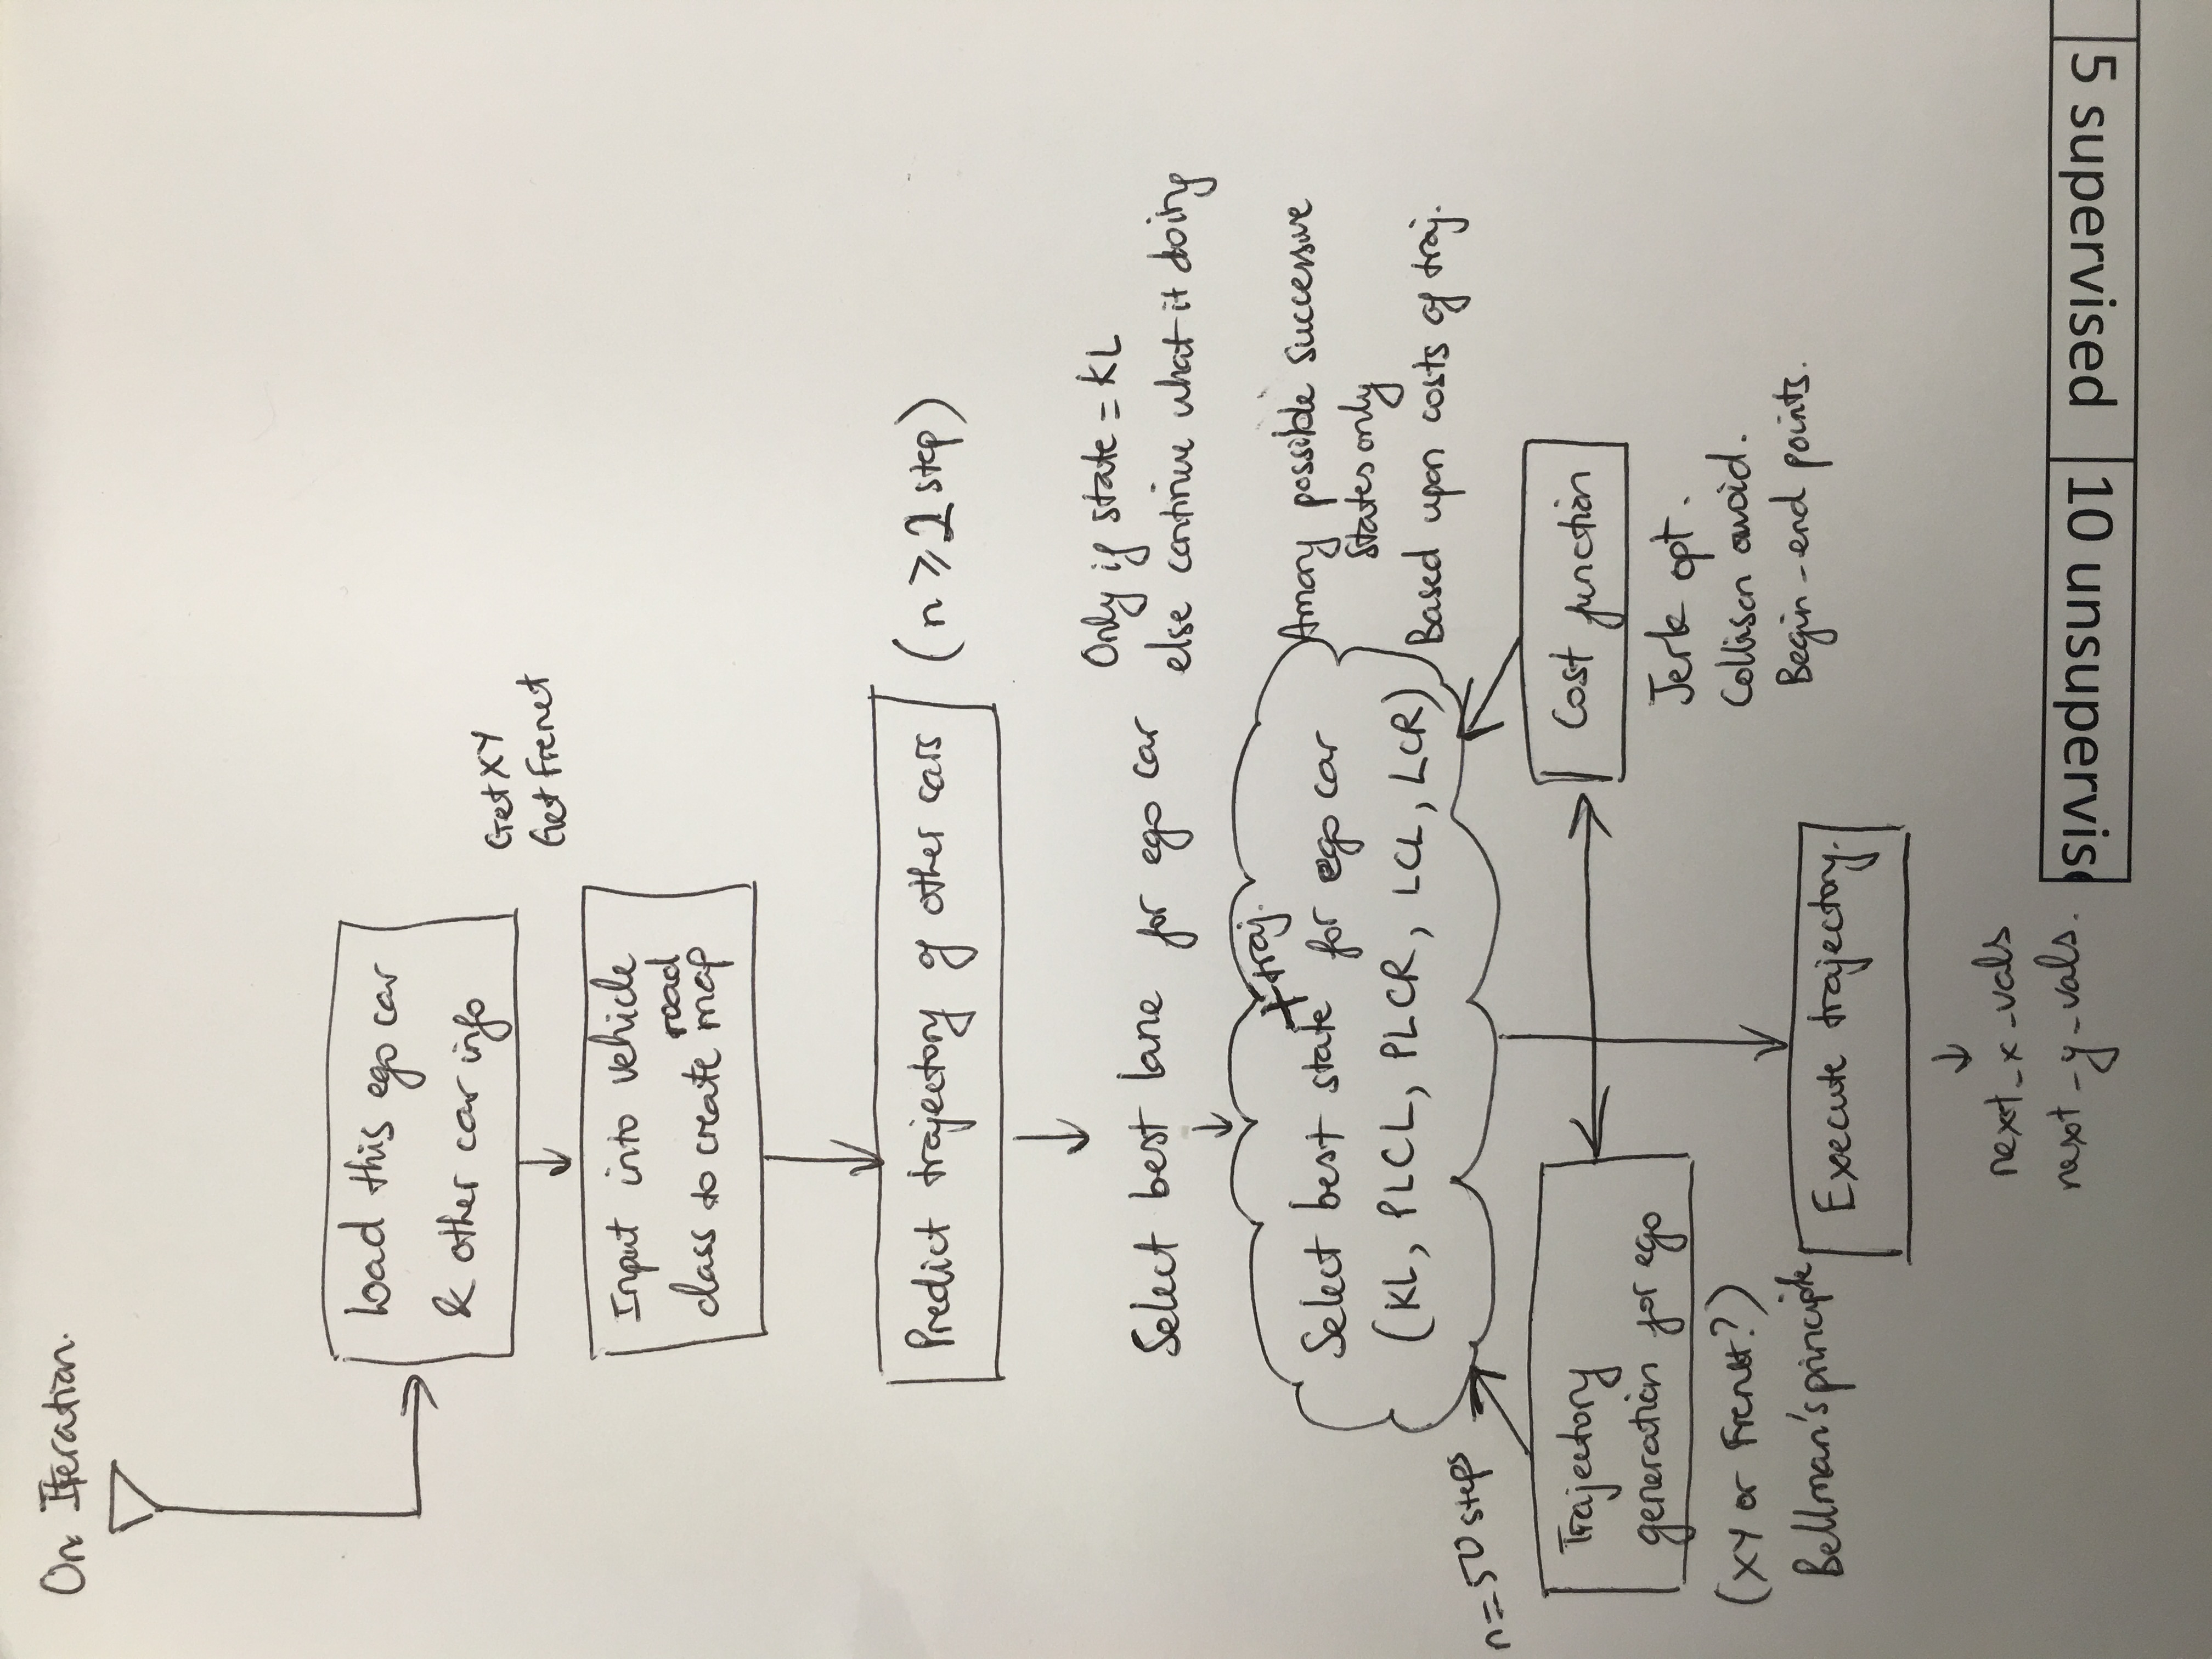 On Iteration.
Load this ego car
& other car info
GetXY
Get Frenet
Input into vehicle
road
class to create map
Predict trajectory of other cars
(n ⩾ 2 step)
Only if state = KL
Select best lane for ego car
else continue what it doing
+ traj.
Select best state for ego car
(KL, PLCL, PLCR, LCL, LCR)
Among possible successive
states only
Based upon costs of traj.
n=50 steps
Trajectory
generation for ego
Cost function
(XY or Frenet?)
Bellman's principle
Jerk opt.
Collison avoid.
Begin-end points.
Execute trajectory.
next_x_vals
next_y_vals.
5 supervised
10 unsupervis